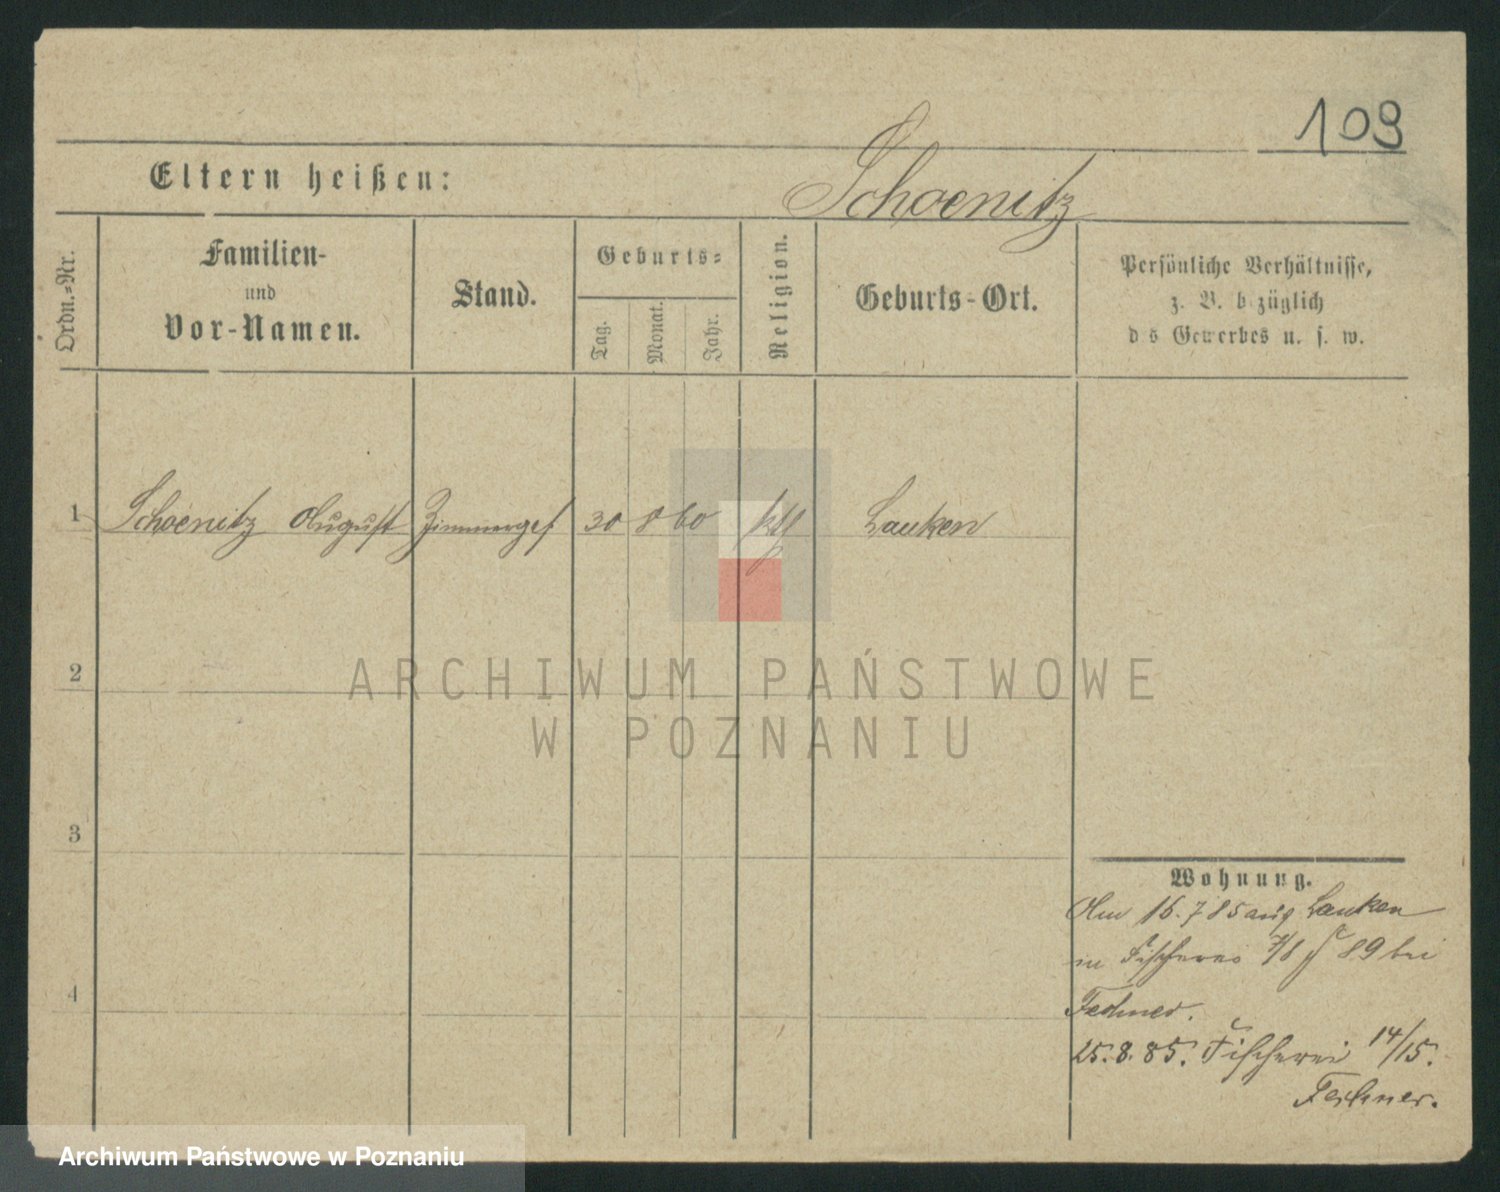 103
Eltern heißen:
Schoenitz
Ordn.-Nr.
Familien-
und
Vor-Namen.
Stand.
Geburts-
Tag.
Monat.
Jahr.
Religion.
Geburts-Ort.
Persönliche Verhältnisse,
z. B. bezüglich
des Gewerbes u. s. w.
1 Schoenitz August Zimmerges 30 8 60 ktl Lauken
2
3
4
Wohnung.
Am 16. 7 85 aus Lauken
in Fischerei 7/8 89 bei
Fechner.
25. 8. 85. Fischerei 14/15.
Fechner.
ARCHIWUM PAŃSTWOWE
W POZNANIU
Archiwum Państwowe w Poznaniu